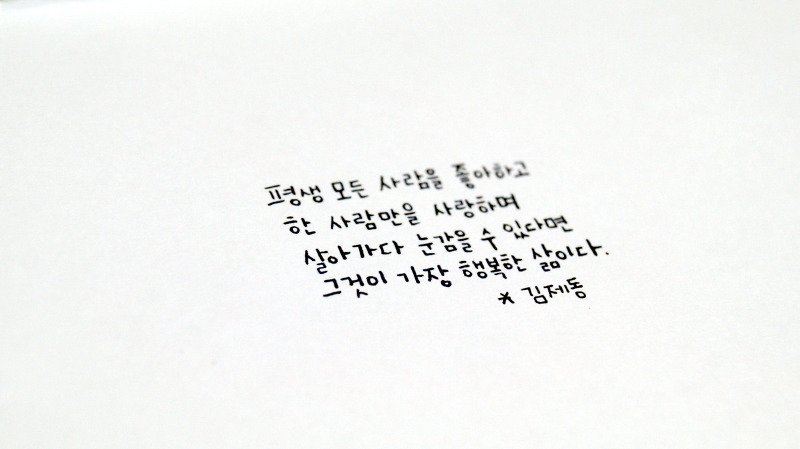 평생 모든 사람을 좋아하고
한 사람만을 사랑하며
살아가다 눈감을 수 있다면
그것이 가장 행복한 삶이다.
* 김제동